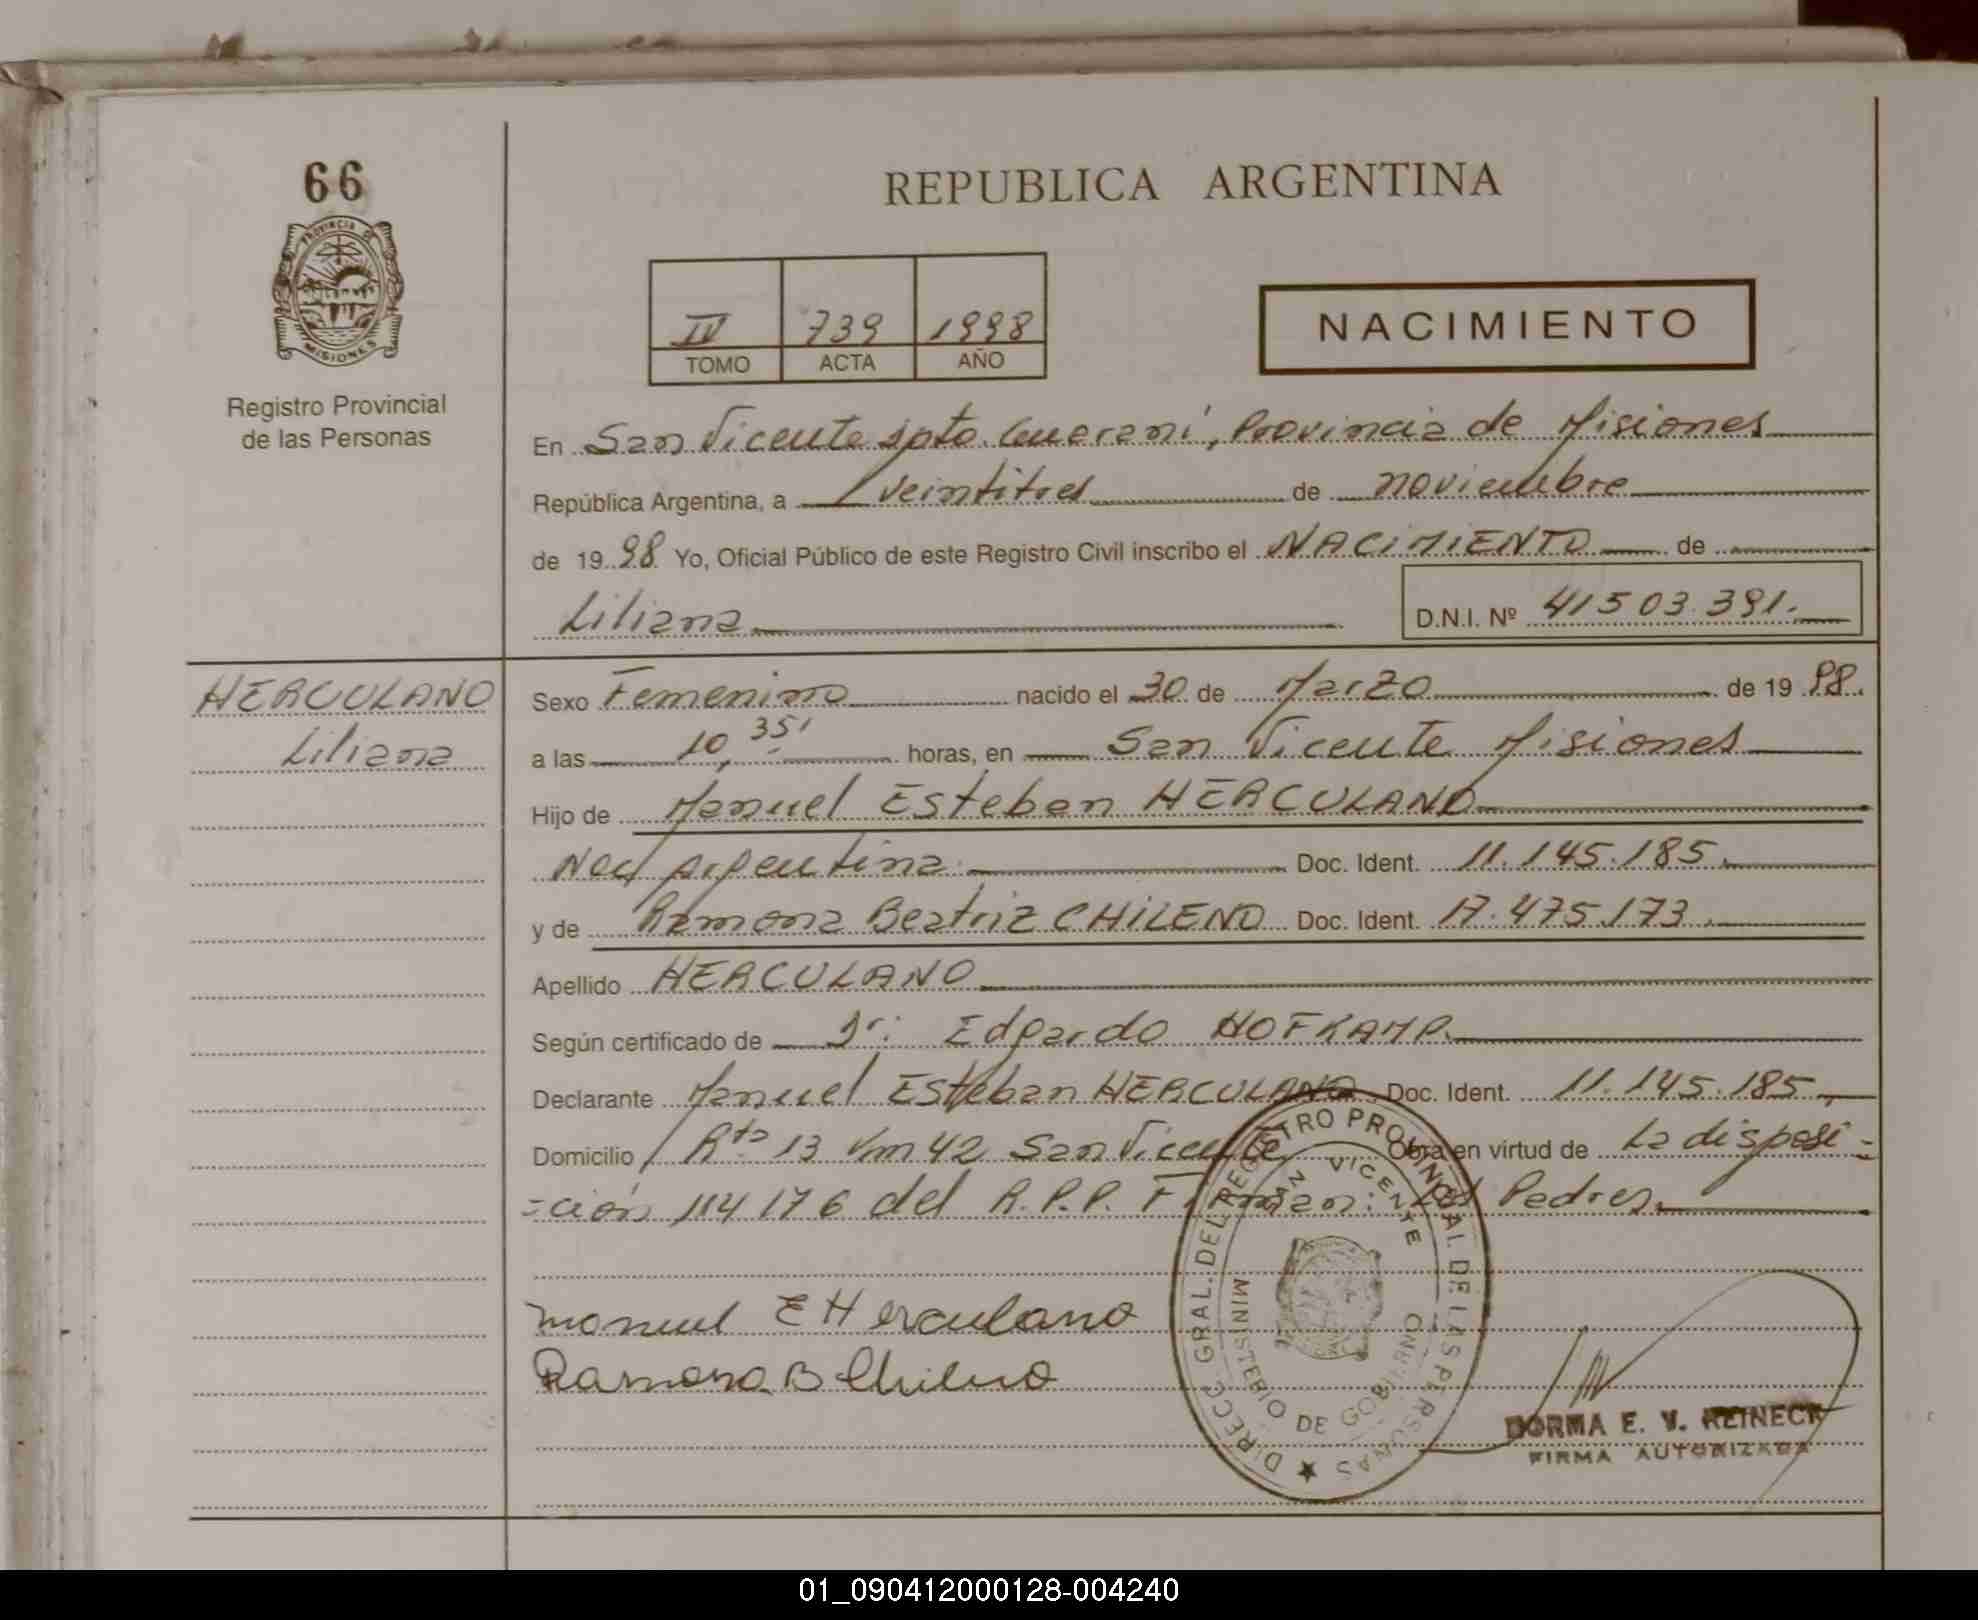 66
REPUBLICA ARGENTINA
PROVINCIA DE
MISIONES
IV 739 1998
TOMO ACTA AÑO
NACIMIENTO
Registro Provincial
de las Personas
En San Vicente Dpto. Guaraní, Provincia de Misiones
República Argentina, a veintitres de noviembre
de 19 98 Yo, Oficial Público de este Registro Civil inscribo el NACIMIENTO de
Liliana D.N.I. Nº 41503.391.
HERCULANO
Liliana
Sexo Femenino nacido el 30 de Marzo de 19 98.
a las 10,35' horas, en San Vicente Misiones
Hijo de Manuel Esteban HERCULANO
Nac/ argentina. Doc. Ident. 11.145.185.
y de Ramona Beatriz CHILENO Doc. Ident. 17.475.173.
Apellido HERCULANO
Según certificado de Dr: Edgardo HOFKAMP.
Declarante Manuel Esteban HERCULANO Doc. Ident. 11.145.185.
Domicilio Rta 13 km 42 San Vicente Obra en virtud de La disposi=
=ción 114176 del R.P.P. Firman: Los Padres.
Manuel E Herculano
Ramona B Chileno
DIRECC. GRAL. DEL REGISTRO PROVINCIAL DE LAS PERSONAS
SAN VICENTE
MINISTERIO DE GOBIERNO
DORMA E. V. REINECK
FIRMA AUTORIZADA
01_090412000128-004240